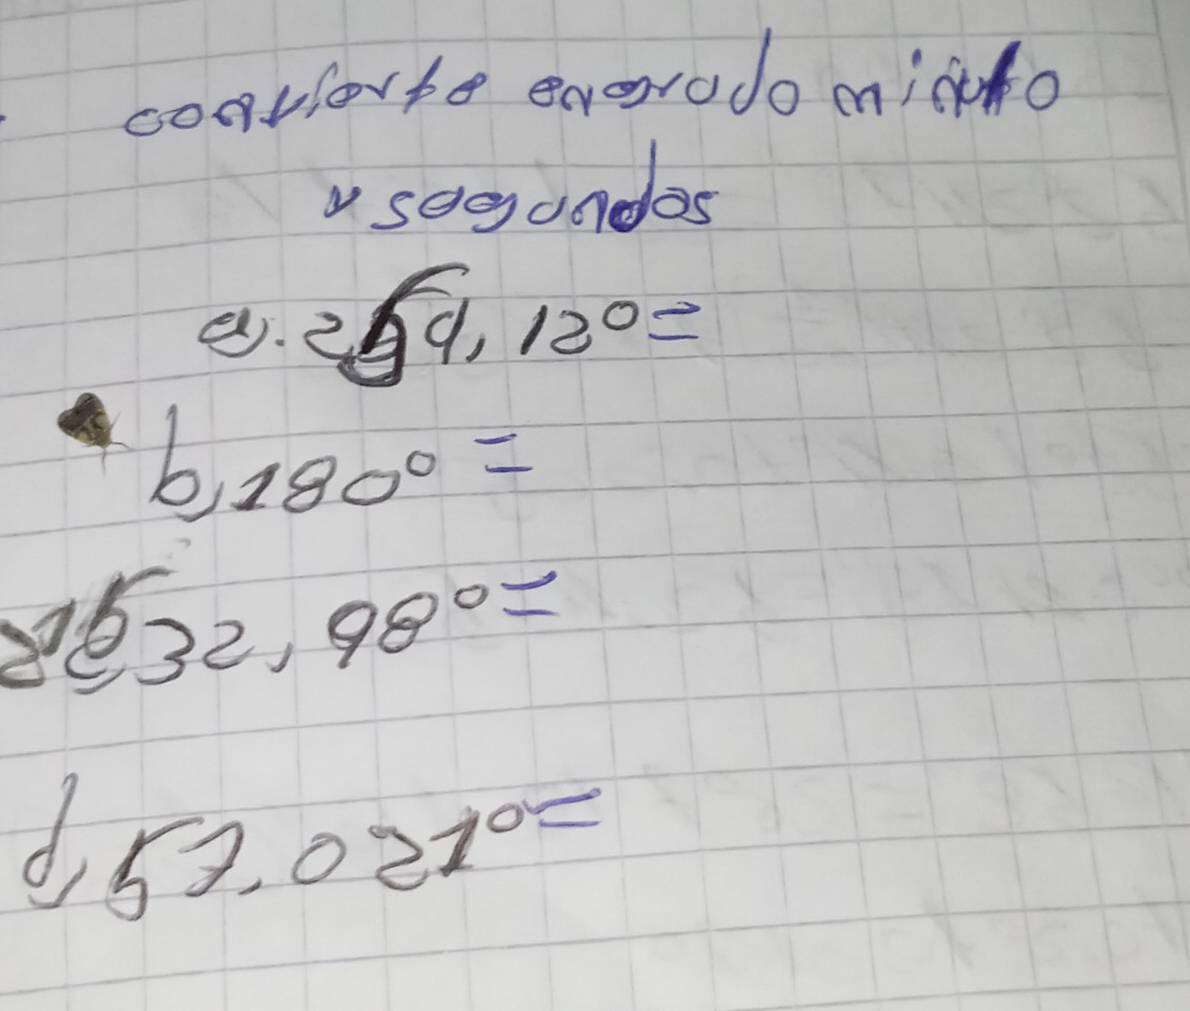 convierte en grado minuto
y segundos
a). 254, 12° =
b, 180° =
32, 98° =
d, 57, 021° =